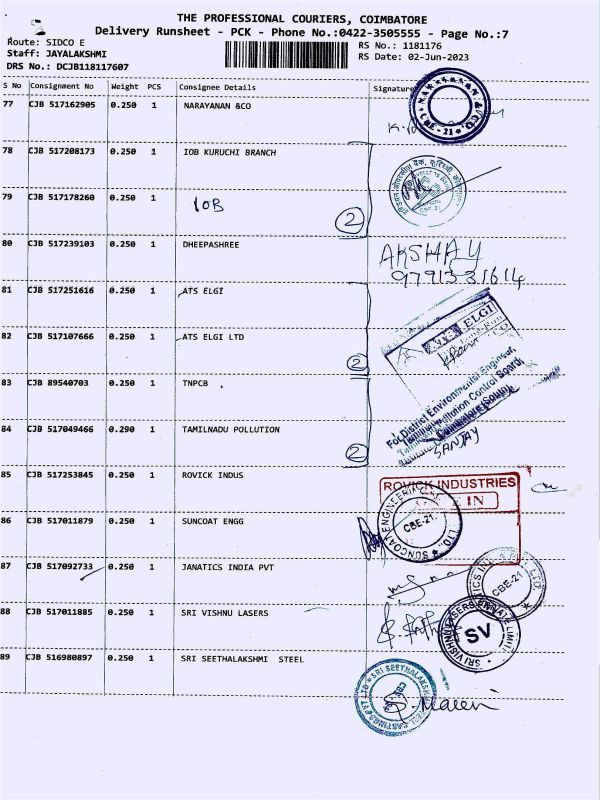 THE PROFESSIONAL COURIERS, COIMBATORE
Delivery Runsheet - PCK - Phone No.:0422-3505555 - Page No.:7
Route: SIDCO E
RS No.: 1181176
Staff: JAYALAKSHMI
RS Date: 02-Jun-2023
DRS No.: DCJB118117607
S No Consignment No Weight PCS Consignee Details Signature
77 CJB 517162905 0.250 1 NARAYANAN &CO
CBE-21
78 CJB 517208173 0.250 1 IOB KURUCHI BRANCH
79 CJB 517178260 0.250 1 IOB
2
CBE-21
80 CJB 517239103 0.250 1 DHEEPASHREE AKSHAY
9791331614
81 CJB 517251616 0.250 1 ATS ELGI
ATS ELGI
82 CJB 517107666 0.250 1 ATS ELGI LTD
2
83 CJB 89540703 0.250 1 TNPCB
For District Environmental Engineer,
Tamilnadu Pollution Control Board,
Coimbatore (South)
84 CJB 517049466 0.290 1 TAMILNADU POLLUTION
2
SANJAY
85 CJB 517253845 0.250 1 ROVICK INDUS
ROVICK INDUSTRIES
IN
86 CJB 517011879 0.250 1 SUNCOAT ENGG
SUNCOAT ENGINEERING LTD.
CBE-21.
87 CJB 517092733 0.250 1 JANATICS INDIA PVT
CBE-21
88 CJB 517011885 0.250 1 SRI VISHNU LASERS
SRI VISHNU LASERS PRIVATE LIMITED
SV
89 CJB 516980897 0.250 1 SRI SEETHALAKSHMI STEEL
SRI SEETHALAKSHMI
CASTINGS PVT LTD